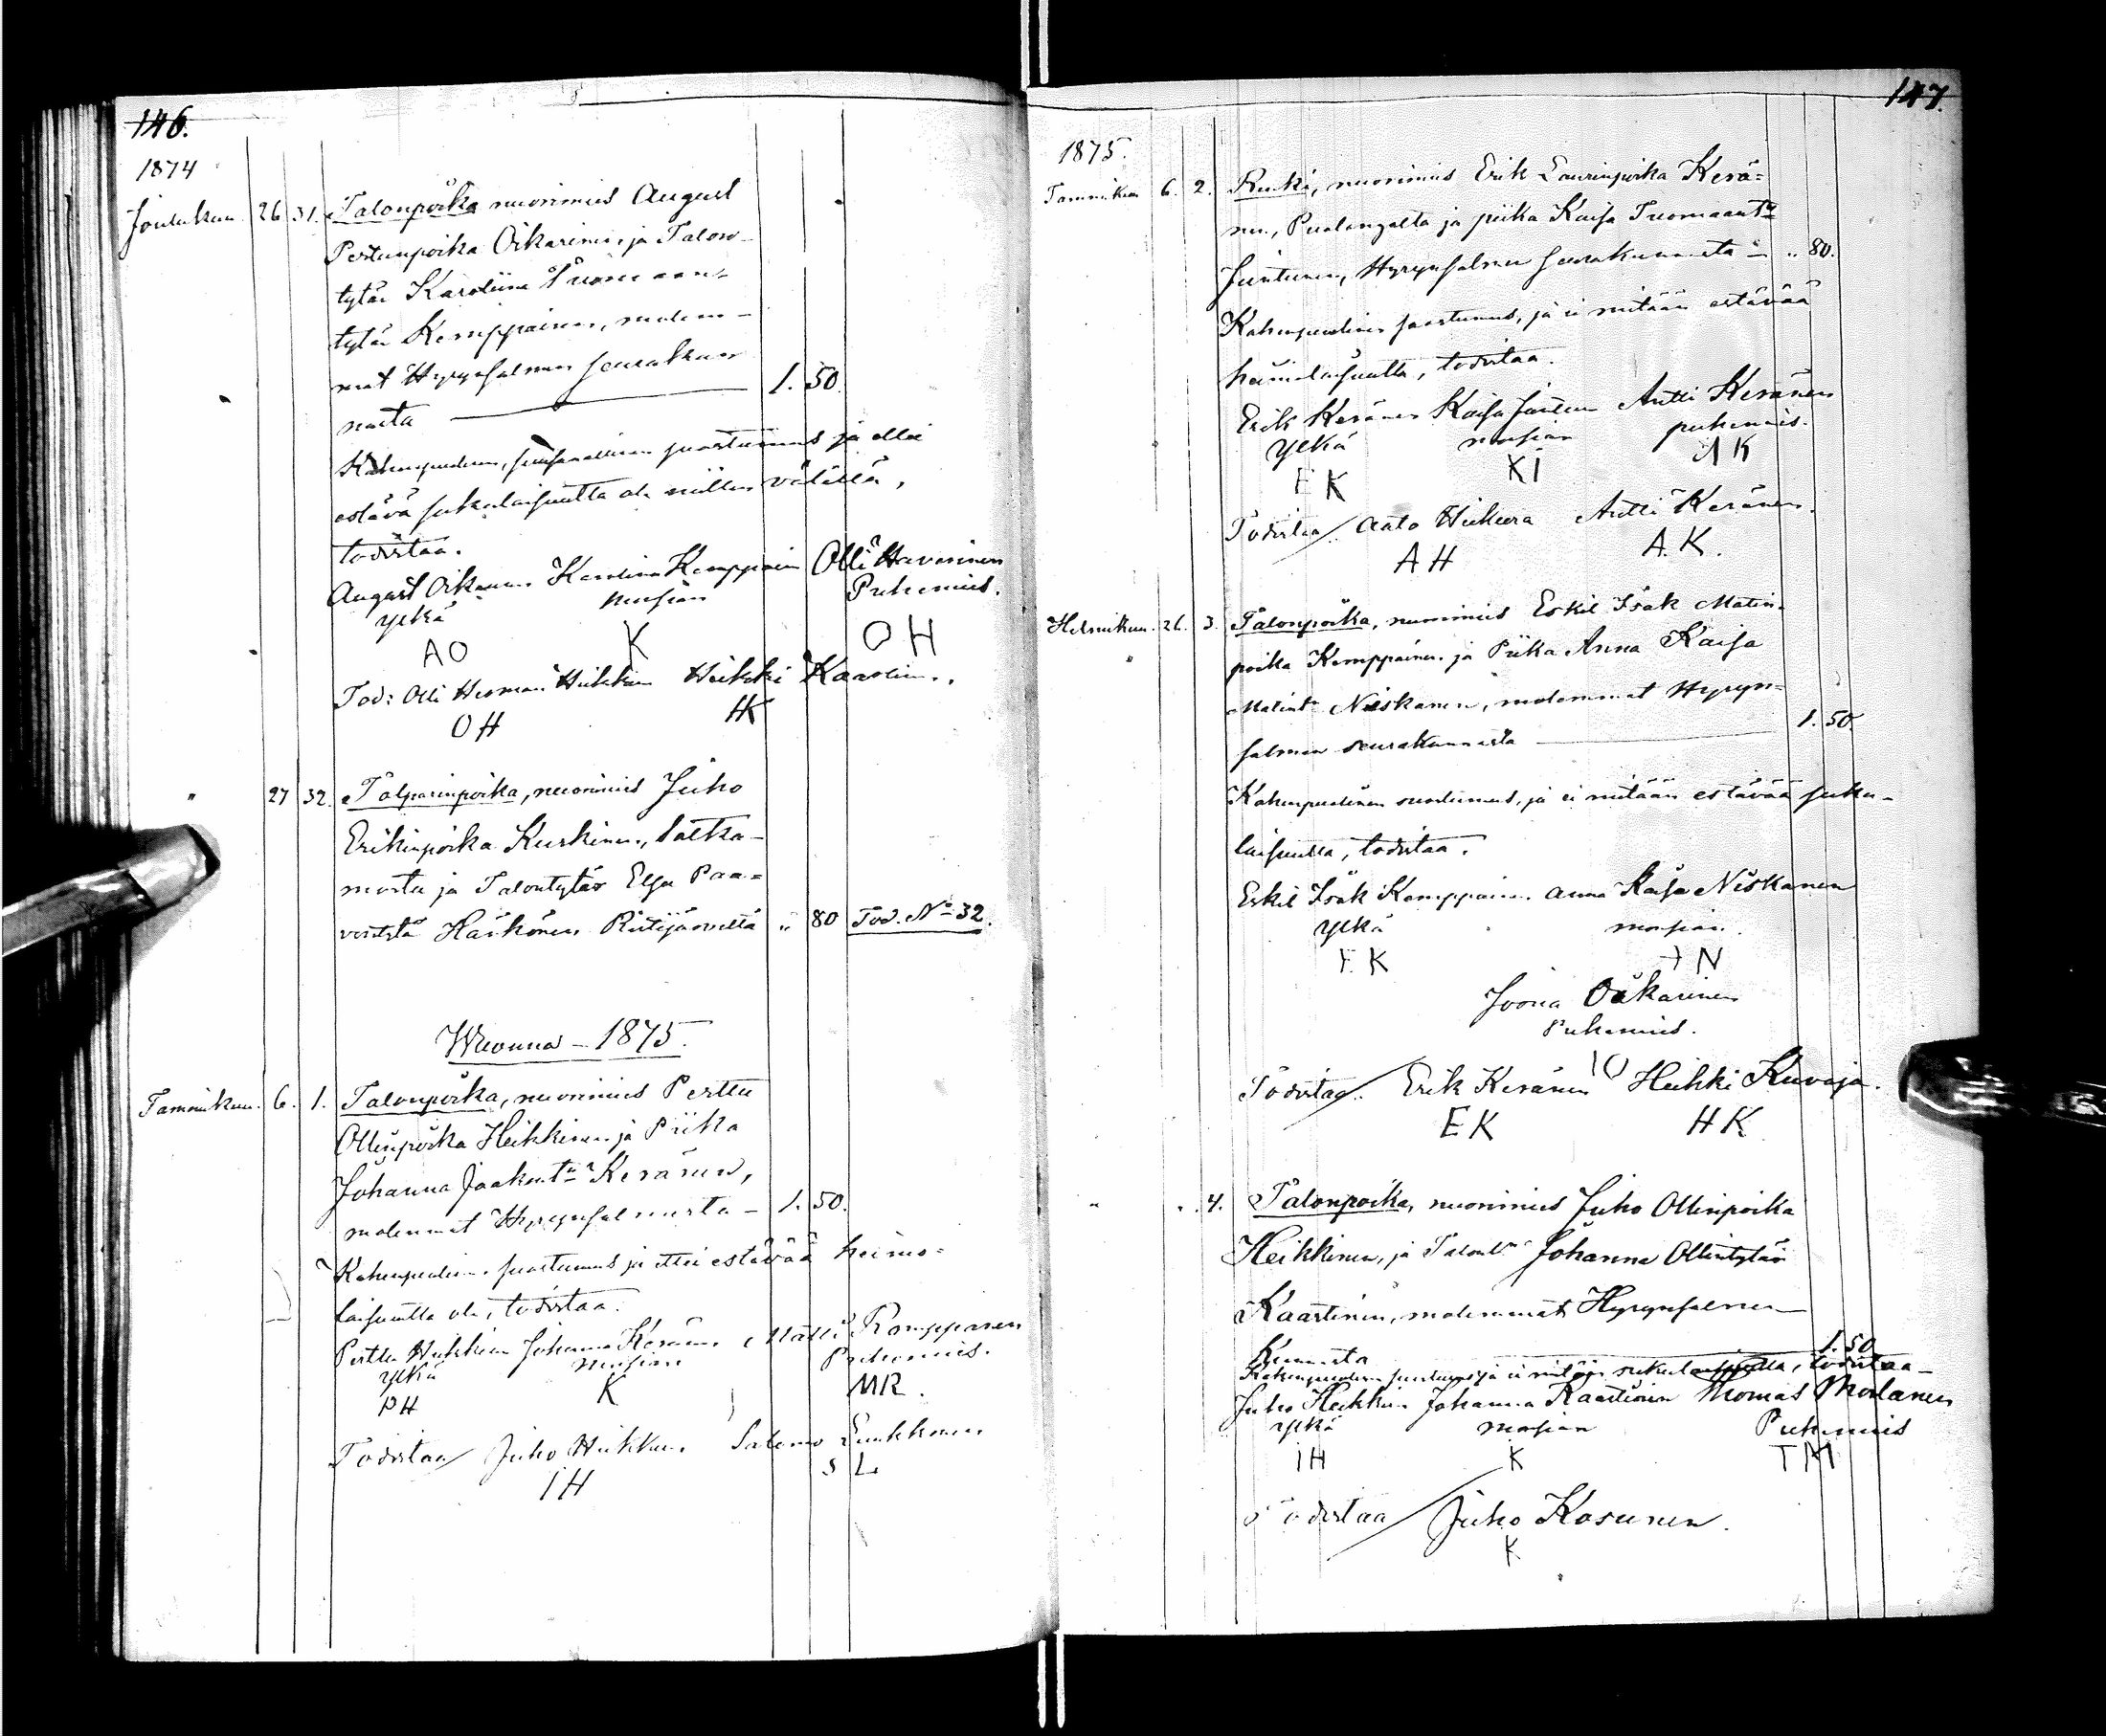 146.
1874
Joulukuu. 26 31. Talonpoika nuorimies August
Pertunpoika Oikarinen, ja Talon-
tytär Karoliina Tuomaan-
tytär Kemppainen, molem-
mat Hyrynsalmen seurakun
nasta — 1. 50.
Kahenpuolinen, suostumus ja ettei
estävä sukulaisuutta ole niitten välillä,
todistaa.
August Oikarinen Karolina Kemppain Olli Haverinen
ylkä morsian Puhemies.
AO K OH
Tod: Olli Herman Heikkinen Heikki Kaartinen.
OH HK
" 27 32. Talparinpoika, nuorimies Juho
Erikinpoika Kurkinen, Sotka-
mosta ja Talontytär Elsa Paa-
vontytä Härkönen Ristijärveltä " 80 Tod. No 32.
Wuonna - 1875.
Tammikuu. 6. 1. Talonpoika, nuorimies Perttu
Ollinpoika Heikkinen ja Piika
Johanna Jaakont:r Keränen,
molemmat Hyrynsalmesta - 1. 50.
Kahenpuolin. suostumus ja ettei estävää heimo-
laisuutta ole, todistaa.
Perttu Heikkinen Johanna Keränen Matti Romppanen
ylkä morsian Puhemies.
PH K MR.
Todistaa Juho Heikkinen Salomo Leinkkonen
IH S L
147.
1875.
Tammikuu 6. 2. Renki, nuorimies Erik Laurinpoika Kerä-
nen, Puolangalta ja piika Kaisa Tuomaant:r
Juntunen, Hyrynsalmen seurakunnasta - " 80.
Kahenpuolinen suostumus, ja ei mitään estävää
heimolaisuutta, todistaa.
Erik Keränen Kaisa Juntunen Antti Keränen
ylkä morsian puhemies.
EK KI AK
Todistaa. Aato Heikura Antti Keränen.
AH A.K.
Helmikuu. 26. 3. Talonpoika, nuorimies Eskil Isak Matin-
poika Kemppainen. ja Piika Anna Kaisa
Matint:r Niskanen, molemmat Hyryn-
salmen seurakunnasta — 1. 50.
Kahenpuolinen suostumus, ja ei mitään estävää suku-
laisuutta, todistaa.
Eskil Isak Kemppainen. Anna Kaisa Niskanen
ylkä morsian.
EK + N
Joona Oikarinen
Puhemies.
IO
Todistaa. Erik Keränen Heikki Kuvaja.
EK HK
" " 4. Talonpoika, nuorimies Juho Ollinpoika
Heikkinen, ja Talont:r Johanna Ollintytär
Kaartinen, molemmat Hyrynsalmen
Kunnasta 1. 50
Kahenpuolinen suostumus ja ei mitään sukulaisuutta, todistaa -
Juho Heikkin Johanna Kaartinen Thomas Moilanen
ylkä morsian Puhemies
IH K TM
Todistaa Juho Kosunen.
K